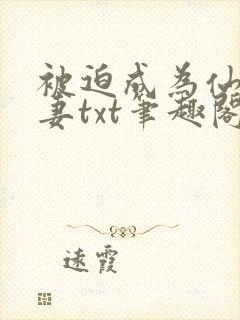 被迫成为仙
妻txt笔趣阁
远霞